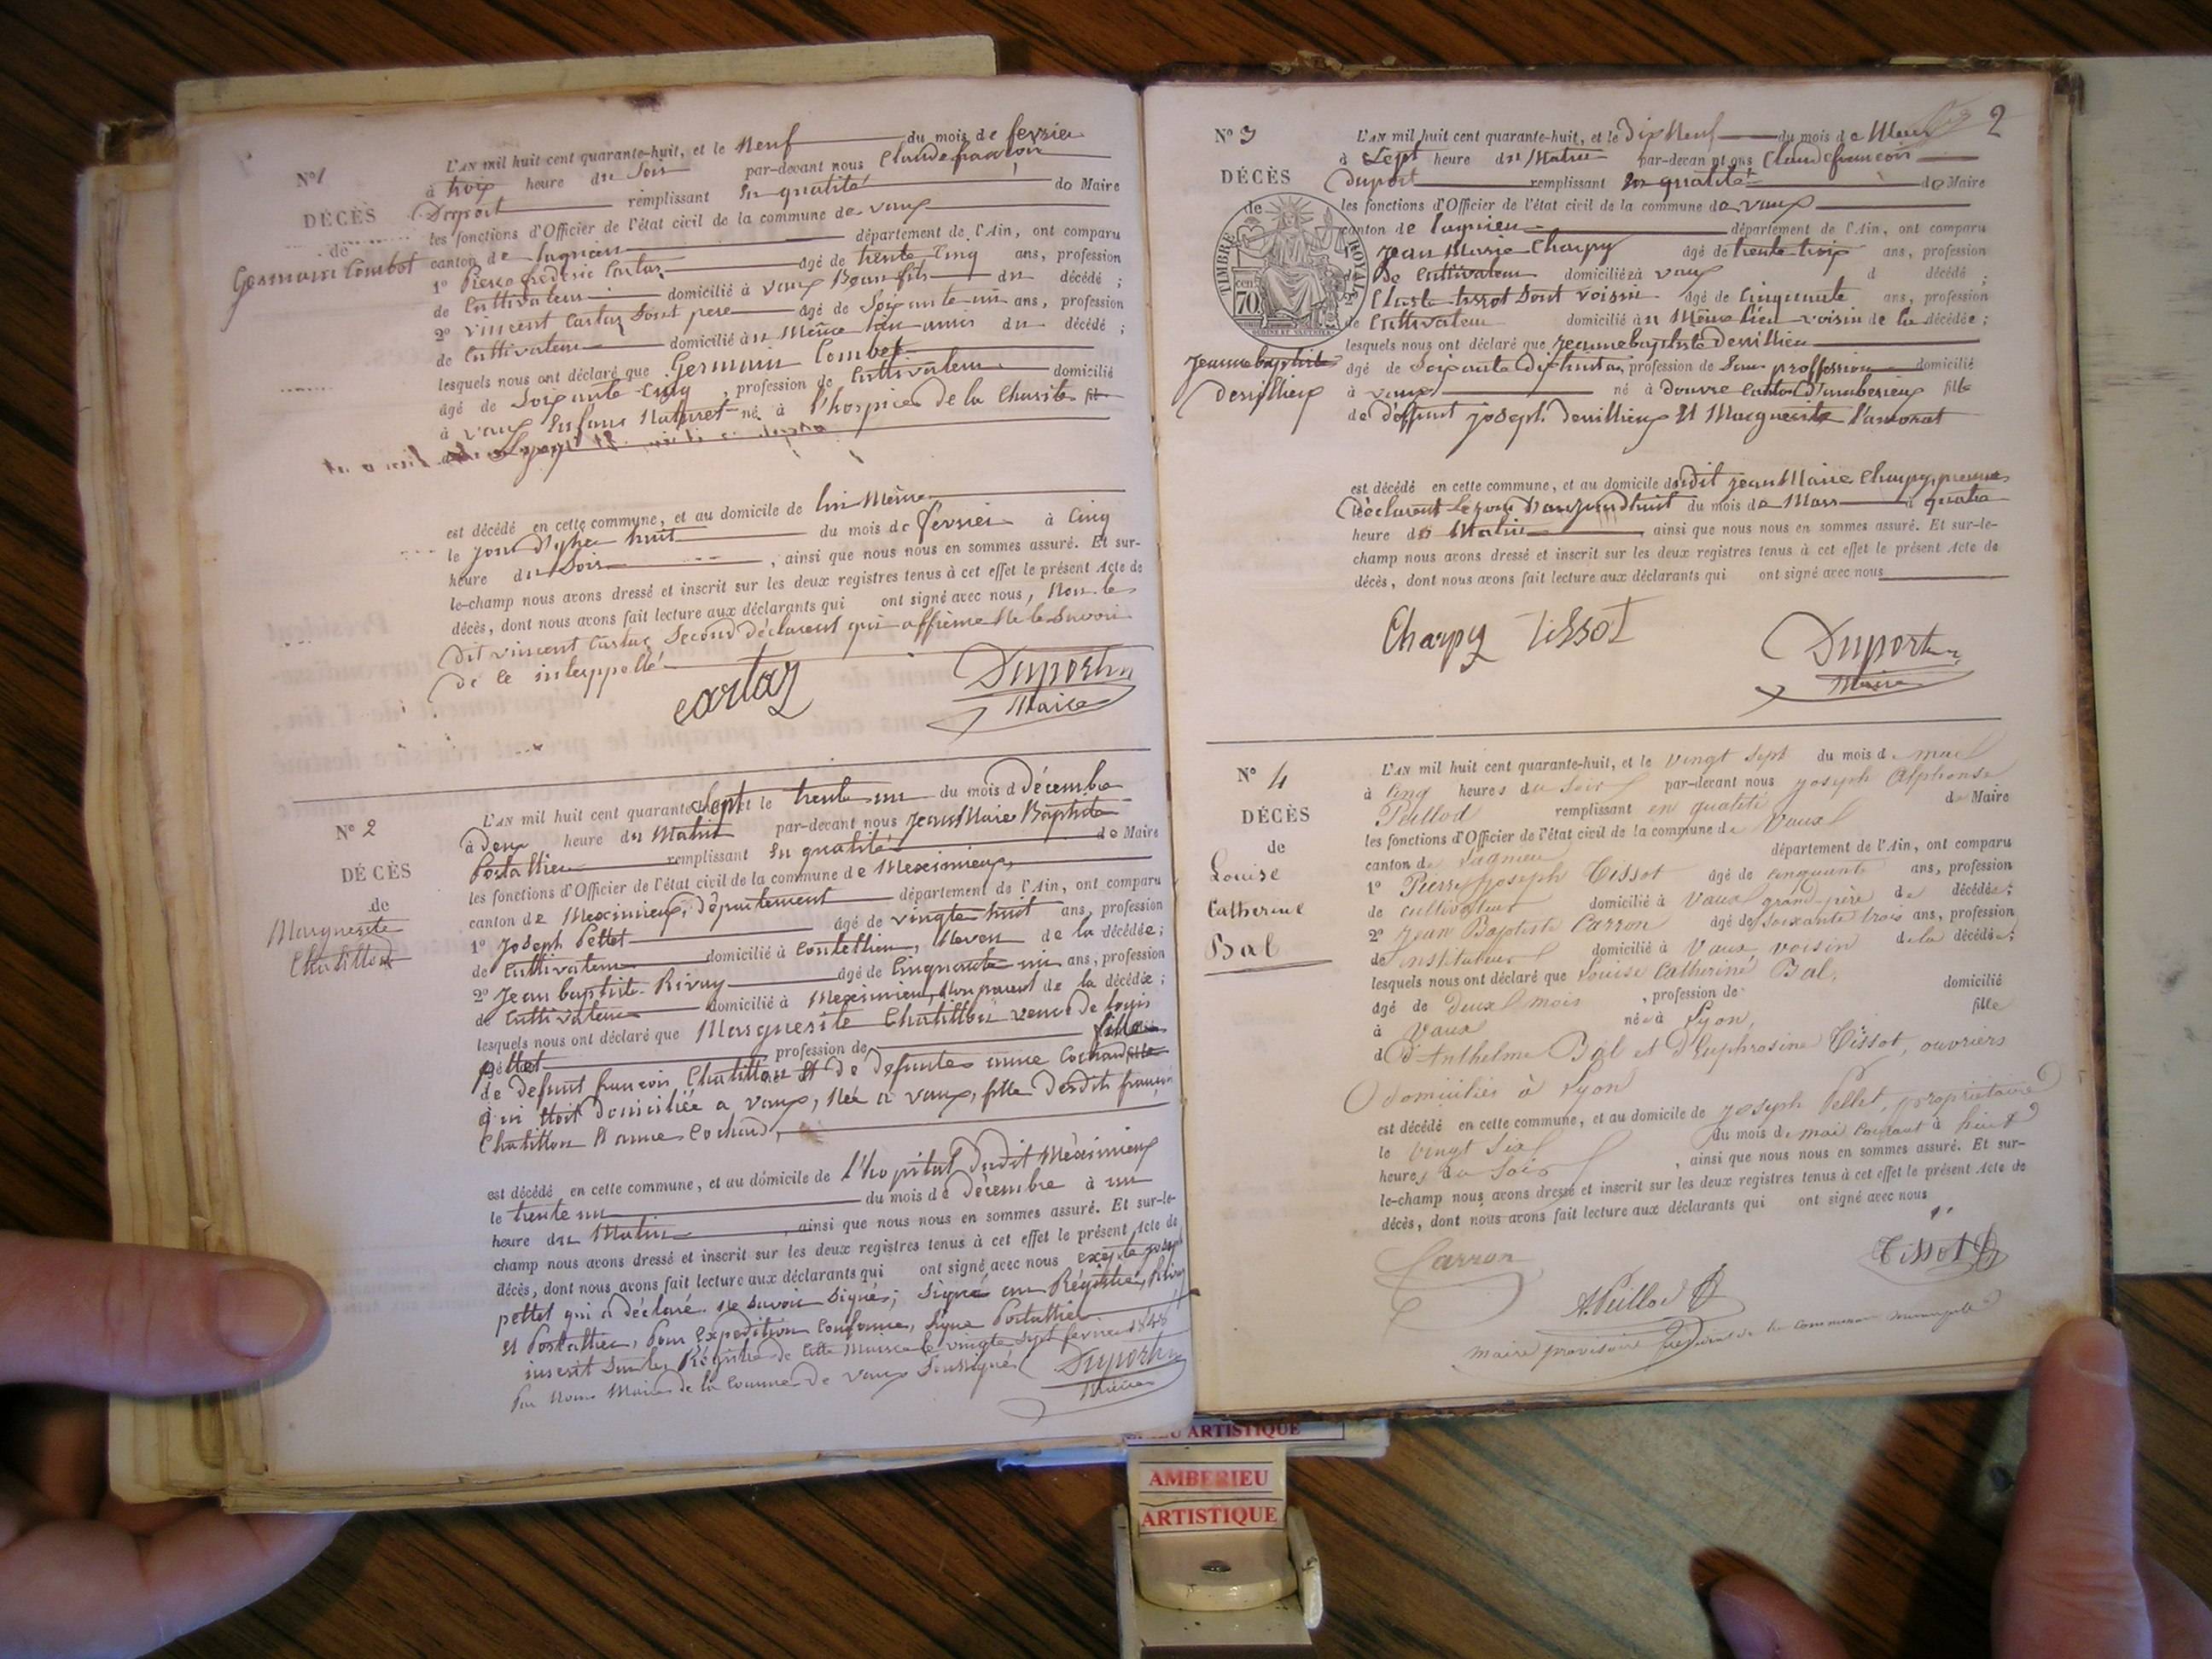 N° 1
DÉCÈS
de
Germain Combet
L'AN mil huit cent quarante-huit, et le Neuf du mois de fevrier
à trois heure du Soir par-devant nous Claude françois
Duport remplissant En qualité de Maire
les fonctions d'Officier de l'état civil de la commune de vaux
canton de Lagnieu département de l'Ain, ont comparu
1° Pierre frederic Cartaz agé de trente Cinq ans, profession
de Cultivateur domicilié à vaux Beaufils du décédé ;
2° vincent Cartaz Sont pere agé de Soixante-un ans, profession
de Cultivateur domicilié à u Même lieu amis du décédé ;
lesquels nous ont déclaré que Germain Combet
âgé de Soixante-Cinq , profession de Cultivateur domicilié
à vaux Enfant Naturel né à l'hospice de la Charité fils
de Lyon
est décédé en cette commune, et au domicile de lui Même
le jour d'yher huit du mois de fevrier à Cinq
heure du Soir , ainsi que nous nous en sommes assuré. Et sur-
le-champ nous avons dressé et inscrit sur les deux registres tenus à cet effet le présent Acte de
décès, dont nous avons fait lecture aux déclarants qui ont signé avec nous, Non le
dit vincent Cartaz Second déclarent qui affirme Ne le Savoir
de Ce interppellé
Cartaz Duport
Maire
N° 2
DÉCÈS
de
Marguerite
Chatillon
L'AN mil huit cent quarante Sept et le trente un du mois d décembre
à deux heure du Matin par-devant nous Jean Marie Baptiste
Portallier remplissant En qualité de Maire
les fonctions d'Officier de l'état civil de la commune de Meximieux
canton de Meximieux, département département de l'Ain, ont comparu
1° Joseph Pettet âgé de vingte huit ans, profession
de Cultivateur domicilié à Contellieu, Neveu de la décédée ;
2° Jean baptiste Rivuy âgé de Cinquante un ans, profession
de Cultivateur domicilié à Meximieux, Non parent de la décédée ;
lesquels nous ont déclaré que Marguerite Chatillon veuve de Louis
pettet profession de fille
de defunt françois Chatillon et de defunte anne Cochard fille
qui Etoit domiciliée a vaux, Née a vaux, fille desdits françois
Chatillon et anne Cochard,
est décédé en cette commune, et au domicile de l'hopital dudit Méximieux
le trente un du mois de décembre à un
heure du Matin ainsi que nous nous en sommes assuré. Et sur-le-
champ nous avons dressé et inscrit sur les deux registres tenus à cet effet le présent Acte de
décès, dont nous avons fait lecture aux déclarants qui ont signé avec nous exepte joseph
pettet qui a déclaré ne Savoir Signé ; Signé au Régistre, Rivuy
et Portallier, Pour Expedition Conforme, Signé Portallier
inscrit Sur les Régistre de Cette Mairie le vingte Sept fevrier 1848
Par Nous Maire de la Commune de vaux Soussigné Duport
Maire
2
N° 3
DÉCÈS
de
TIMBRE ROYAL
70 cen.
Jeanne baptiste
devillieux
L'AN mil huit cent quarante-huit, et le Dix Neuf du mois de Mars
à Sept heure du Matin par-devant nous Claude françois
Duport remplissant En qualité de Maire
les fonctions d'Officier de l'état civil de la commune de vaux
canton de Lagnieu département de l'Ain, ont comparu
1° Jean Marie Charpy agé de trente trois ans, profession
de Cultivateur domicilié à vaux d décédé ;
2° Claude tissot Sont voisin agé de Cinquante ans, profession
de Cultivateur domicilié à u Même lieu voisin de la décédée ;
lesquels nous ont déclaré que Jeanne baptiste devillieu
âgé de Soixante Dix huit an profession de Sans proffession domicilié
à vaux né à douvre Canton D'amberieux fille
de deffunt joseph devillieux Et Marguerite
est décédé en cette commune, et au domicile dudit jean Marie Charpy, premier
Déclarent le jour D'aujourdhuit du mois de Mars à quatre
heure du Matin ainsi que nous nous en sommes assuré. Et sur-le-
champ nous avons dressé et inscrit sur les deux registres tenus à cet effet le présent Acte de
décès, dont nous avons fait lecture aux déclarants qui ont signé avec nous
Charpy Tissot Duport
Maire
N° 4
DÉCÈS
de
Louise
Catherine
Bal
L'AN mil huit cent quarante-huit, et le vingt sept du mois de mai
à Cinq heures du Soir par-devant nous Joseph Alphonse
Peillod remplissant en qualité de Maire
les fonctions d'Officier de l'état civil de la commune de Vaux
canton de Lagnieu département de l'Ain, ont comparu
1° Pierre Joseph Tissot agé de cinquante ans, profession
de cultivateur domicilié à Vaux grand-père de décédée ;
2° Jean Baptiste Carron âgé de soixante trois ans, profession
de instituteur domicilié à Vaux, voisin de la décédée ;
lesquels nous ont déclaré que Louise Catherine Bal,
âgé de deux mois , profession de domicilié
à Vaux née à Lyon, fille
d d'Anthelme Bal et d'Euphrosine Tissot, ouvriers
domiciliés à Lyon
est décédé en cette commune, et au domicile de Joseph Pellet, propriétaire
le vingt six du mois de mai courant à huit
heures du Soir , ainsi que nous nous en sommes assuré. Et sur-
le-champ nous avons dressé et inscrit sur les deux registres tenus à cet effet le présent Acte de
décès, dont nous avons fait lecture aux déclarants qui ont signé avec nous
Carron Tissot
A. Peillod
maire provisoire président de la commission municipale
ARTISTIQUE
AMBERIEU
ARTISTIQUE